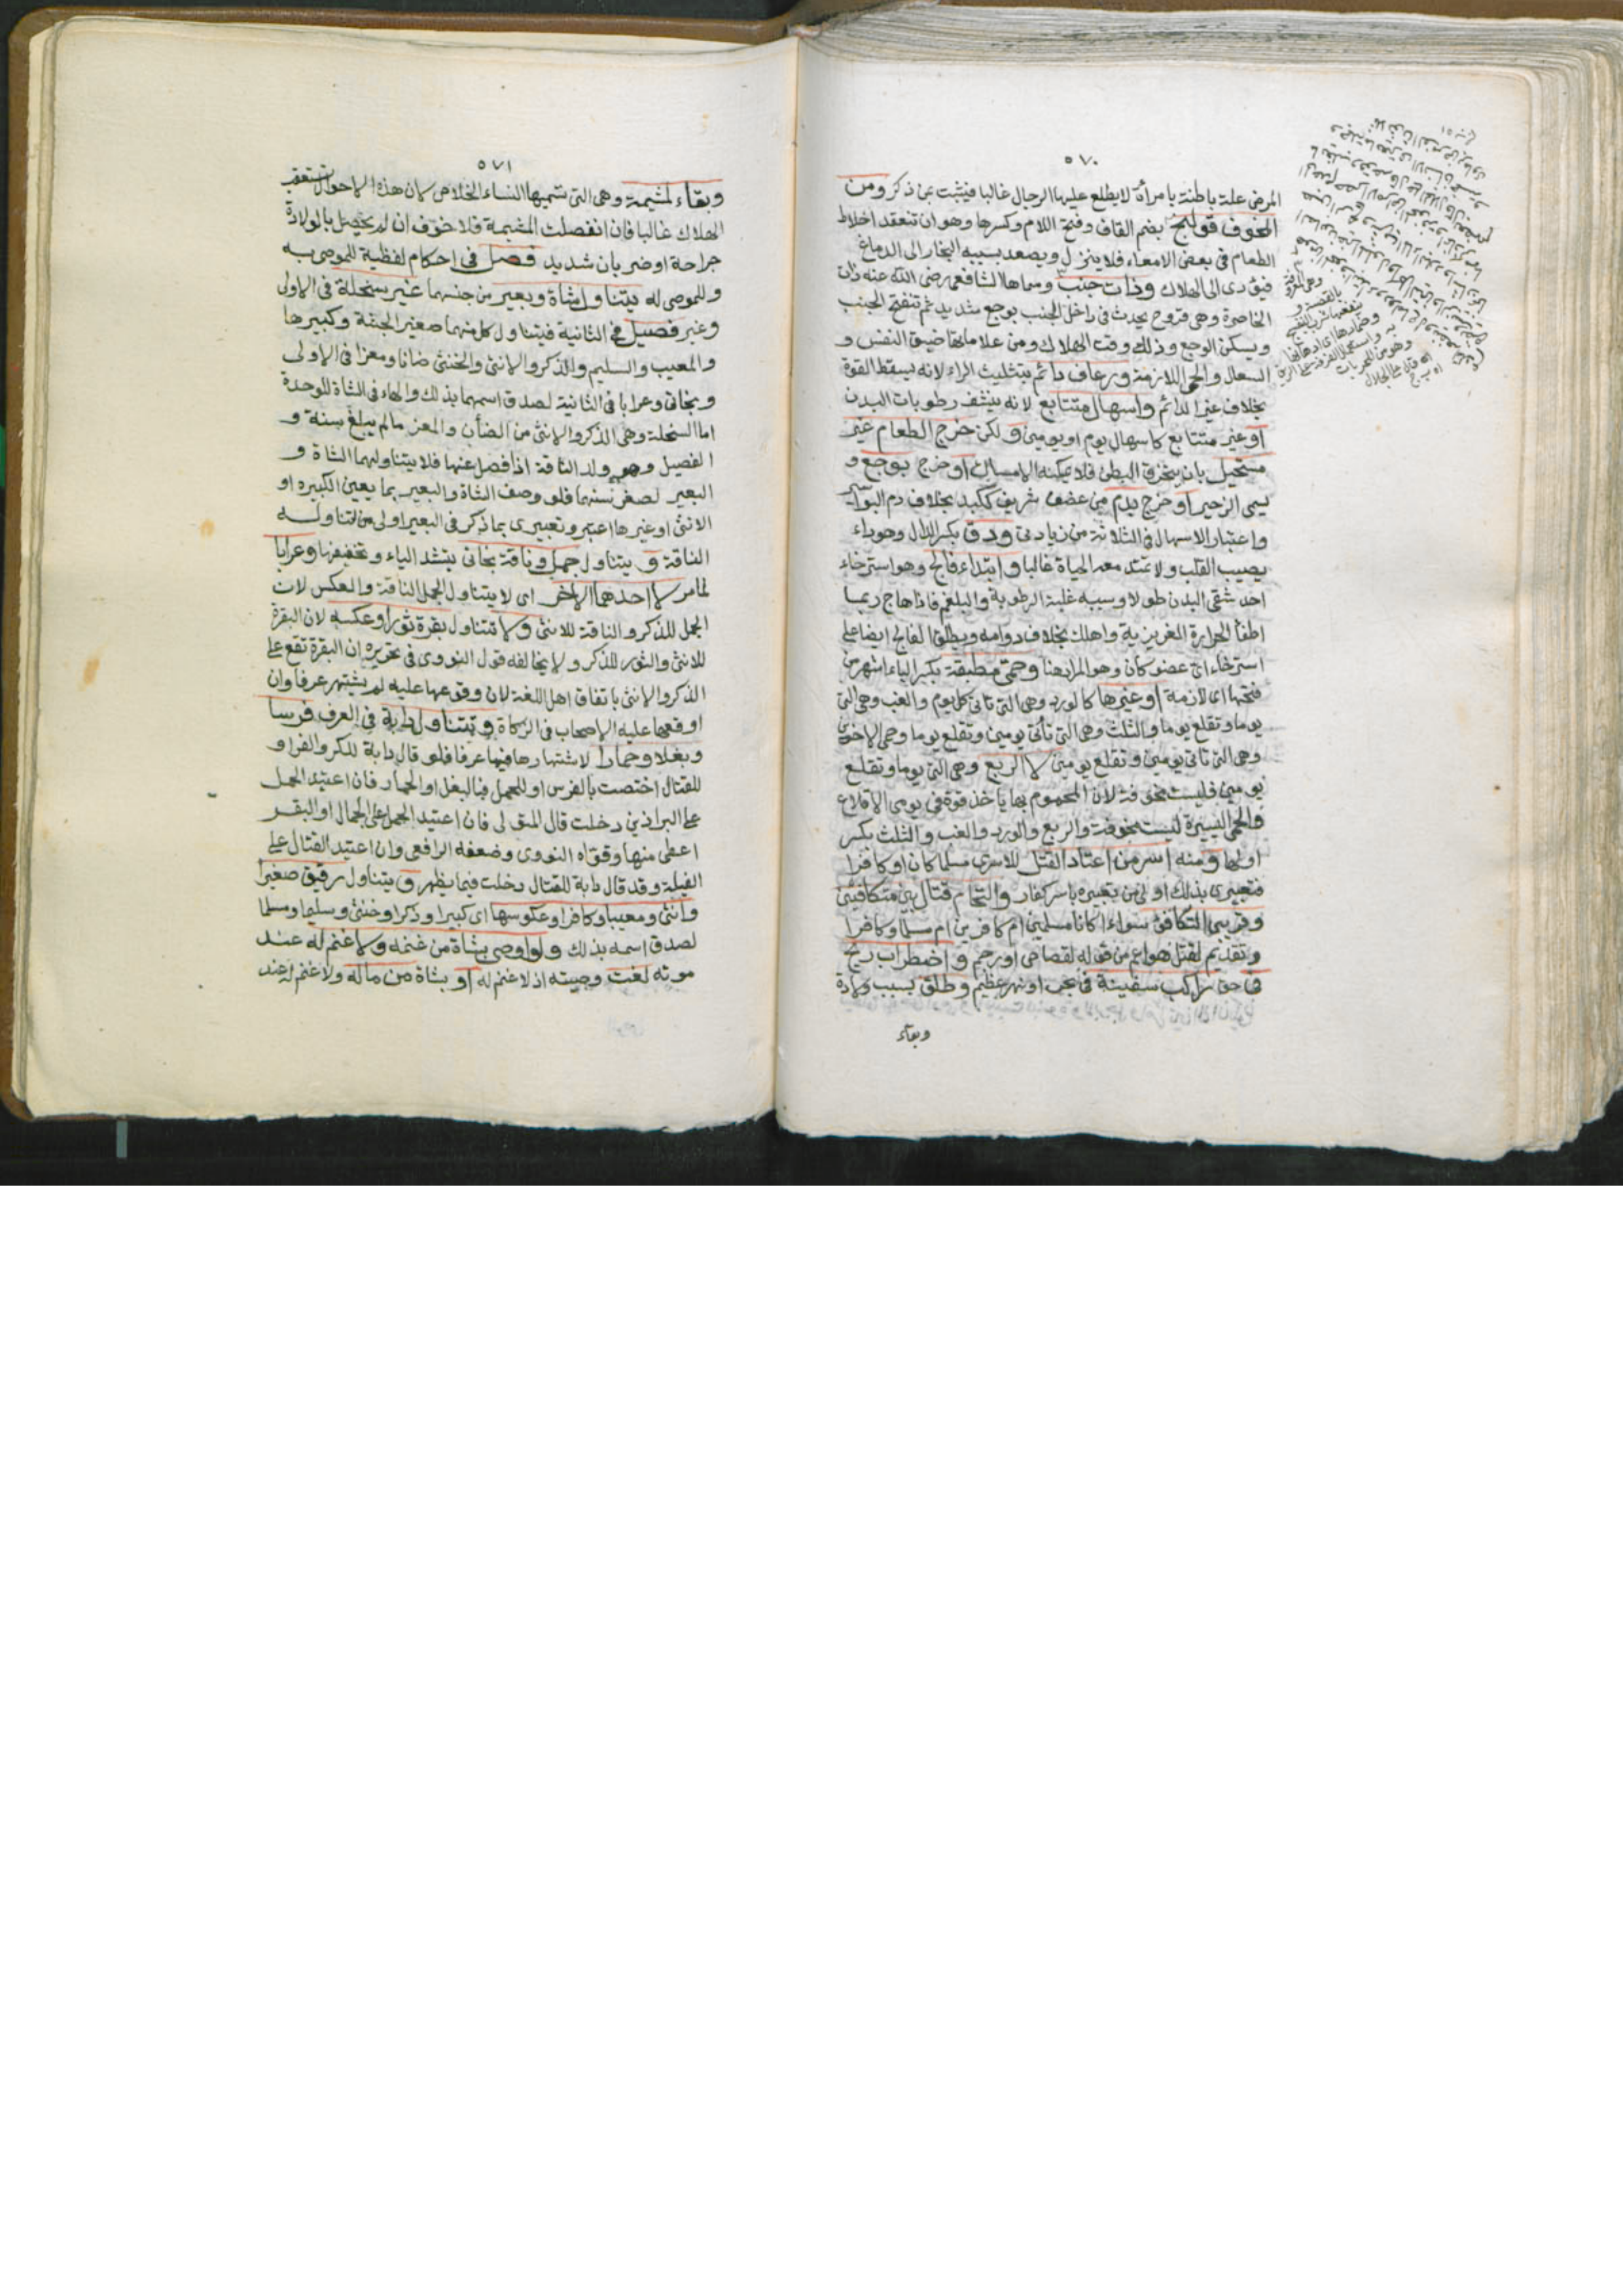 ٥٧٠
المرض علة باطنة بامرأة لا يطلع عليها الرجال غالبا فيثبت بمن ذكر ومن
المخوف قولنج بضم القاف وفتح اللام وكسرها وهو ان تنعقد اخلاط
الطعام في بعض الامعاء فلا ينزل ويصعد بسببه البخار الى الدماغ
فيؤدى الى الهلاك وذات جنب وسماها الشافعى رضى الله عنه ذات
الخاصرة وهى قروح تحدث فى داخل الجنب بوجع شديد ثم تنفتح الجنب
ويسكن الوجع وذلك وقت الهلاك ومن علاماتها ضيق النفس و
السعال والحمى اللازمة ورعاف دائم بتثليث الراء لانه يسقط القوة
بخلاف غير الدائم واسهال متتابع لانه ينشف رطوبات البدن
او غير متتابع كاسهال يوم او يومين و لكن خرج الطعام غير
مستحيل بان ينخرق البطن فلا يمكنه الامساك او خرج بوجع و
يسمى الزحير او خرج بدم من عضو شريف ككبد بخلاف دم البواسير
واعتبار الاسهال فى الثلاثة من زيادتى ودق بكسر الدال وهو داء
يصيب القلب ولا تمتد معه الحياة غالبا وابتداء فالج وهو استرخاء
احد شقى البدن طولا وسببه غلبة الرطوبة والبلغم فاذا هاج ربما
اطفأ الحرارة الغريزية واهلك بخلاف دوامه ويطلق الفالج ايضا على
استرخاء اى عضو كان وهو المراد هنا وحمى مطبقة بكسر الباء اشهر من
فتحها اى لازمة او غيرها كالورد وهى التى تاتى كل يوم والغب وهى التى
يوما وتقلع يوما والثلث وهى التى تأتى يومين وتقلع يوما وحمى الاخوين
وهى التى تاتى يومين وتقلع يومين لا الربع وهى التى يوما وتقلع
يومين فليست مخوفة لان المحموم بها ياخذ قوة فى يومى الاقلاع
والحمى اليسيرة ليست مخوفة والربع والورد والغب والثلث بكسر
اولها ومنه اسر من اعتاد القتل للاسرى مسلما كان او كافرا
فتعبيرى بذلك اولى من تعبيره باسر كفار والتحام قتال بين متكافئين
وقريبى التكافئ سواء اكانا مسلمين ام كافرين ام مسلما وكافرا
وتقديم لقتل هو اعم من قوله لقصاص او رجم واضطراب ريح
فى حق راكب سفينة فى بحر او نهر عظيم وطلق بسبب ولادة
وبقاء
٥٧١
وبقاء لمشيمة وهى التى تسميها النساء الخلاص لان هذه الاحوال تستعقب
الهلاك غالبا فان انفصلت المشيمة فلا خوف ان لم يحصل بالولادة
جراحة او ضربان شديد فصل فى احكام لفظية للموصى به
وللموصى له يتناول شاة وبعير من جنسهما غير سخلة فى الاولى
وغير فصيل فى الثانية فيتناول كل منهما صغير الجثة وكبيرها
والمعيب والسليم والذكر والانثى والخنثى ضانا ومعزا فى الاولى
وبخاتى وعرابا فى الثانية لصدق اسمهما بذلك والهاء فى الشاة للوحدة
اما السخلة وهى الذكر والانثى من الضأن والمعز مالم يبلغ سنة و
الفصيل وهو ولد الناقة اذا فصل عنها فلا يتناولهما الشاة و
البعير لصغر سنهما فلو وصف الشاة والبعير بما يعين الكبيره او
الانثى او غيرها اعتبر وتعبيرى بما ذكر فى البعير اولى من تناوله
الناقة و يتناول جمل وناقة بخاتى بتشد الياء وتخفيفها وعرابا
لما مر لا احدهما الاخر اى لا يتناول الجمل الناقة والعكس لان
الجمل للذكر والناقة للانثى ولا تتناول بقرة ثورا وعكسه لان البقرة
للانثى والثور للذكر ولا يخالفه قول النووى فى تحريره ان البقرة تقع على
الذكر والانثى باتفاق اهل اللغة لان وقوعها عليه لم يشتهر عرفا وان
اوقعها عليه الاصحاب فى الزكاة وتتناول دابة فى العرف فرسا
وبغلا وحمارا لاشتهارها فيها عرفا فلو قال دابة للكر والفر او
للقتال اختصت بالفرس او للحمل فبالبغل او الحمار فان اعتيد الحمل
على البراذين دخلت قال المتولى فان اعتيد الحمل على الجمال او البقر
اعطى منها وقواه النووى وضعفه الرافعى وان اعتيد القتال على
الفيلة وقد قال دابة للقتال دخلت فيما يظهر و يتناول رقيق صغيرا
وانثى ومعيبا وكافرا وعكوسها اى كبيرا وذكرا وخنثى وسليما ومسلما
لصدق اسمه بذلك ولو اوصى بشاة من غنمه ولا غنم له عند
موته لغت وصيته اذ لا غنم له او بشاة من ماله ولا غنم له عند